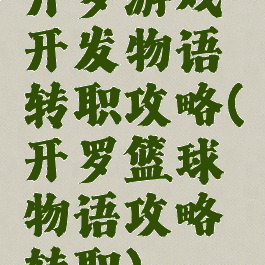 开罗游戏
开发物语
转职攻略(
开罗篮球
物语攻略
转职)